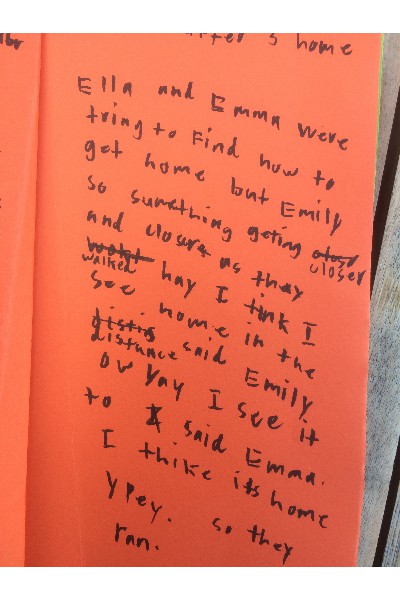 s home
Ella and Emma were
tring to Find how to
get home but Emily
so sumething geting closer
and closer as they
walked hay I tink I
see home in the
distance said Emily
ow yay I see it
to said Emma.
I thike its home
ypey. so they
ran.